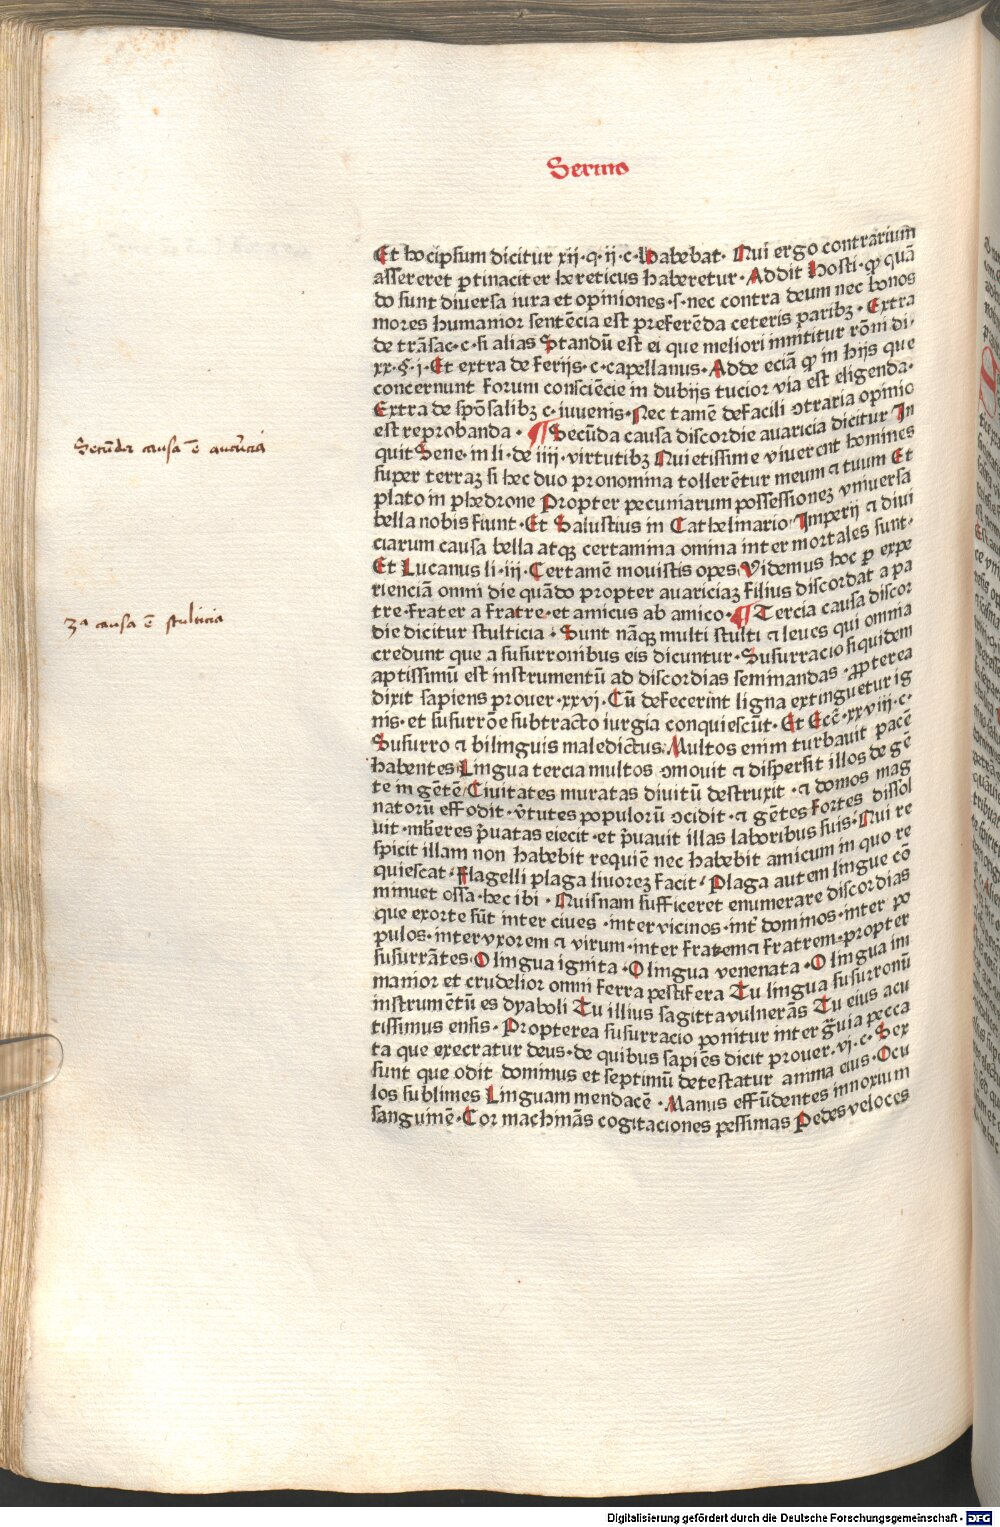 Sermo
Et hocipsum dicitur xij·q·ij·c·habebat· Qui ergo contrariū
assereret ꝑtinaciter hereticus haberetur· Addit Hosti·ꝙ quā
do sunt diuersa iura et opiniones·s·nec contra deum nec bonos
mores humanior sentēcia est preferēda ceteris paribꝫ· Extra
de trāsac·c·fi alias Standū est ei que meliori innititur rōni di·
xx·§·j·Et extra de ferijs·c·capellanus·Adde eciā ꝙ in hijs que
concernunt forum consciēcie in dubijs tucior via est eligenda·
Extra de spōsalibꝫ c·iuuenis·Nec tamē defacili ↄtraria opinio
est reprobanda· ¶Secūda causa discordie auaricia dicitur In
quit Sene·in li·de iiij·virtutibꝫ Quietissime viuerent homines
super terraꝫ si hec duo pronomina tollerētur meum ⁊ tuum Et
plato in phedrone Propter pecuniarum possessioneꝫ vniuersa
bella nobis fiunt·Et Salustius in Cathelinario Imperij ⁊ diui
ciarum causa bella atqꝫ certamina omnia inter mortales sunt·
Et Lucanus li·iij·Certamē mouistis opes Videmus hoc ꝑ expe
rienciā omni die quādo propter auariciaꝫ filius discordat a pa
tre·frater a fratre·et amicus ab amico·¶Tercia causa discor
die dicitur stulticia· Sunt nāqꝫ multi stulti ⁊ leues qui omnia
credunt que a susurronibus eis dicuntur·Susurracio siquidem
aptissimū est instrumentū ad discordias seminandas·ꝓpterea
dixit sapiens prouer·xxvj·Cū defecerint ligna extinguetur ig
nis·et susurrōe subtracto iurgia conquiescūt·Et Eccē·xxviij·c·
Susurro ⁊ bilinguis maledictus Multos enim turbauit pacē
habentes Lingua tercia multos ↄmouit ⁊ dispersit illos de gē
te in gētē Ciuitates muratas diuitū destruxit·⁊ domos mag
natorū effodit·v̄tutes populorū ↄcidit·⁊ gētes fortes dissol
uit·mlieres p̄uatas eiecit·et p̄uauit illas laboribus suis·Qui re
spicit illam non habebit requiē nec habebit amicum in quo re
quiescat·Flagelli plaga liuoreꝫ facit·Plaga autem lingue cō
minuet ossa·hec ibi· Quisnam sufficeret enumerare discordias
que exorte sūt inter ciues·inter vicinos·int̄ dominos·inter po
pulos·inter vxorem ⁊ virum·inter fratrem ⁊ fratrem·propter
susurrātes O lingua ignita·O lingua venenata·O lingua im
manior et crudelior omni ferra pestifera Tu lingua susurronū
instrumētū es dyaboli Tu illius sagitta vulnerās Tu eius acu
tissimus ensis·Propterea susurracio ponitur inter g̃uia pecca
ta que execratur deus·de quibus sapiēs dicit prouer·vj·c·Sex
sunt que odit dominus et septimū detestatur anima eius·Ocu
los sublimes Linguam mendacē·Manus effūdentes innoxium
sanguinē·Cor machinās cogitaciones pessimas Pedes veloces
Secūda causa ē auaricia
3ᵃ causa ē stulticia
Digitalisierung gefördert durch die Deutsche Forschungsgemeinschaft - DFG